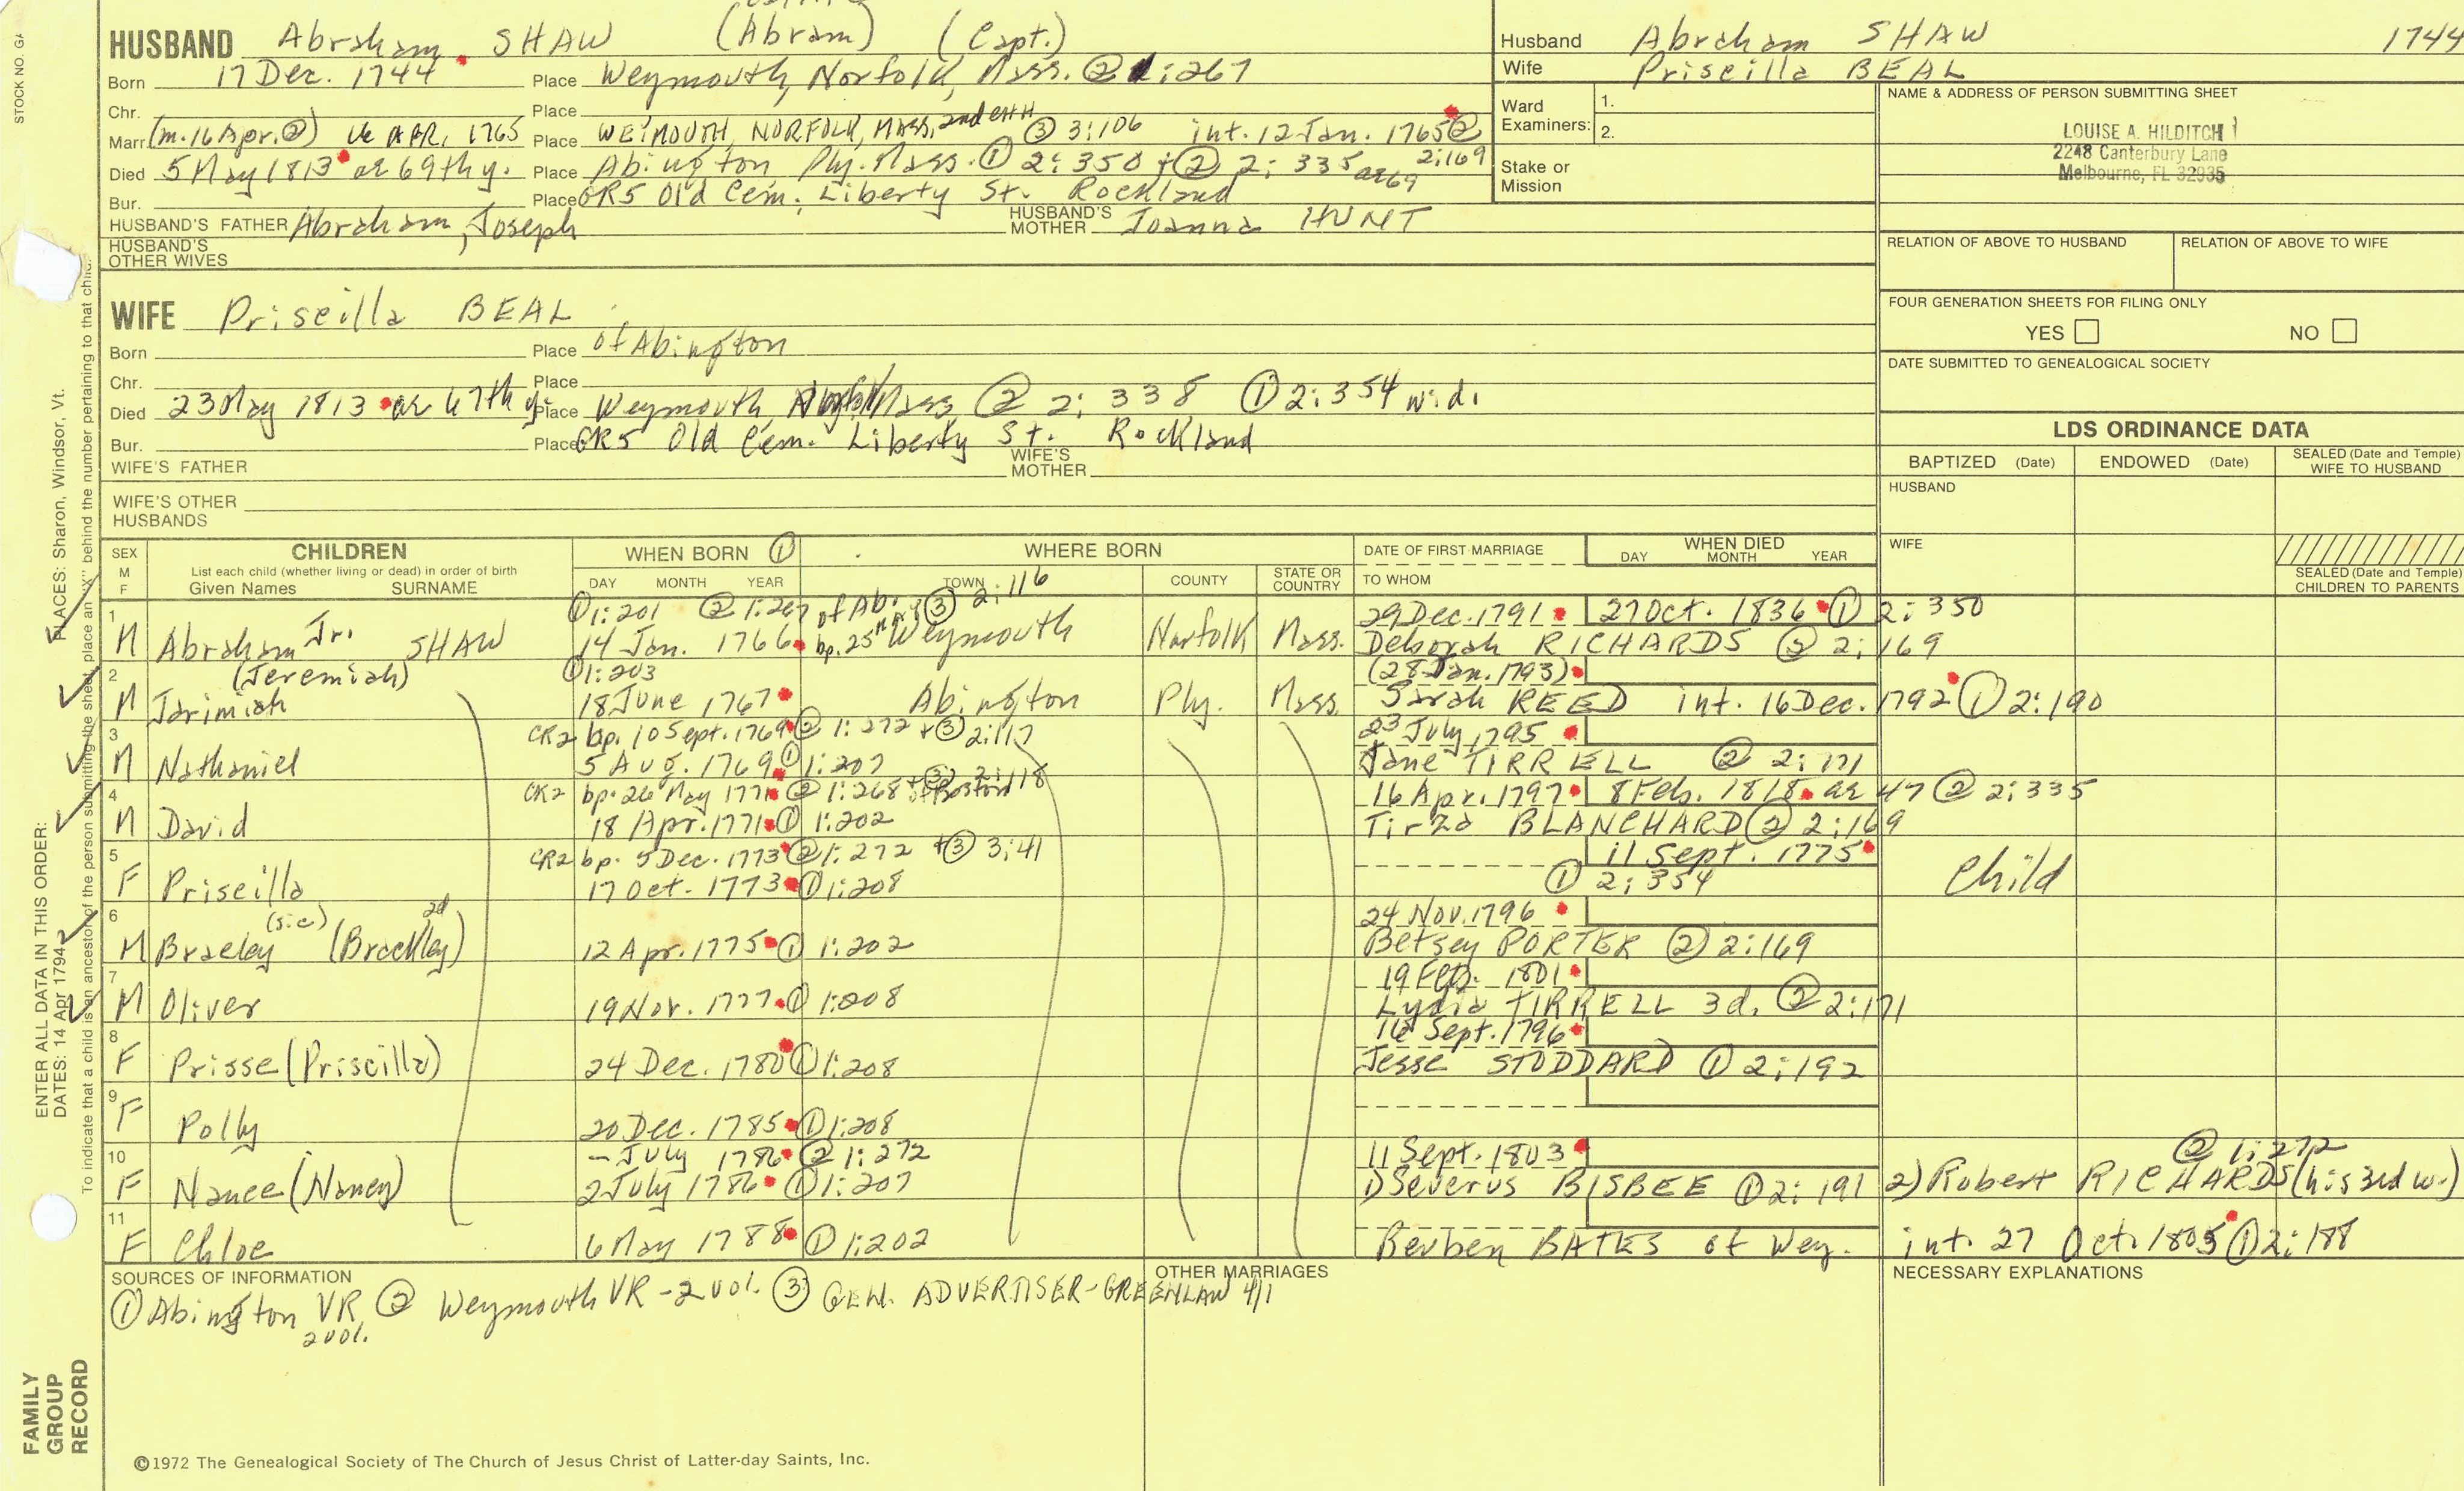 HUSBAND Abraham SHAW (Abram) (Capt.)
Born 17 Dec. 1744 Place Weymouth, Norfolk, Mass. ② 1:267
Chr. Place
Marr. (m. 16 Apr. ②) APR, 1765 Place WEYMOUTH, NORFOLK, MASS, ③ 3:106 int. 12 Jan. 1765 ② 2:169
Died 5 May 1813 ae 69th y. Place Abington Ply. Mass. ① 2:350 + ② 2:335 ae 69
Bur. Place GR5 Old Cem. Liberty St. Rockland
HUSBAND'S FATHER Abraham, Joseph HUSBAND'S MOTHER Joanna HUNT
HUSBAND'S OTHER WIVES
WIFE Priscilla BEAL
Born Place of Abington
Chr. Place
Died 23 May 1813 ae 67th y. Place Weymouth Mass ② 2:338 ① 2:354 wid.
Bur. Place GR5 Old Cem. Liberty St. Rockland
WIFE'S FATHER WIFE'S MOTHER
WIFE'S OTHER HUSBANDS
Husband Abraham SHAW 1744
Wife Priscilla BEAL
Ward Examiners: 1.
2.
Stake or Mission
NAME & ADDRESS OF PERSON SUBMITTING SHEET
LOUISE A. HILDITCH
2248 Canterbury Lane
Melbourne, FL 32935
RELATION OF ABOVE TO HUSBAND RELATION OF ABOVE TO WIFE
FOUR GENERATION SHEETS FOR FILING ONLY
YES NO
DATE SUBMITTED TO GENEALOGICAL SOCIETY
LDS ORDINANCE DATA
BAPTIZED (Date) ENDOWED (Date) SEALED (Date and Temple) WIFE TO HUSBAND
HUSBAND
WIFE
SEALED (Date and Temple) CHILDREN TO PARENTS
SEX M F
CHILDREN
List each child (whether living or dead) in order of birth
Given Names SURNAME
WHEN BORN ①
DAY MONTH YEAR
WHERE BORN
TOWN COUNTY STATE OR COUNTRY
DATE OF FIRST MARRIAGE
TO WHOM
WHEN DIED
DAY MONTH YEAR
1 ① 1:201 ② 1:267 of Ab. ③ 2:116 29 Dec. 1791 27 Oct. 1836 ① 2:350
M Abraham Jr. SHAW 14 Jan. 1766 bp. 25 Weymouth Norfolk Mass. Deborah RICHARDS ② 2:169
2 (Jeremiah) ① 1:203 (28 Jan. 1793)
M Jarimiah 18 June 1767 Abington Ply. Mass. Sarah REED int. 16 Dec. 1792 ① 2:190
3 CR2 bp. 10 Sept. 1769 ② 1:272 + ③ 2:117 23 July 1795
M Nathaniel 5 Aug. 1769 ① 1:207 Jane TIRRELL ② 2:171
4 CR2 bp. 26 May 1771 ② 1:268 + ③ 2:118 of Boston 16 Apr. 1797 8 Feb. 1818 ae 47 ② 2:335
M David 18 Apr. 1771 ① 1:202 Tirza BLANCHARD ② 2:169
5 CR2 bp. 5 Dec. 1773 ② 1:272 + ③ 3:41 11 Sept. 1775 Child
F Priscilla 17 Oct. 1773 ① 1:208 ① 2:354
6 (sic) 2d 24 Nov. 1796
M Braeley (Brackley) 12 Apr. 1775 ① 1:202 Betsey PORTER ② 2:169
7 19 Feb. 1801
M Oliver 19 Nov. 1777 ① 1:208 Lydia TIRRELL 3d. ② 2:171
8 16 Sept. 1796
F Prisse (Priscilla) 24 Dec. 1780 ① 1:208 Jesse STODDARD ① 2:192
9
F Polly 20 Dec. 1785 ① 1:208
10 – July 1786 ② 1:272 11 Sept. 1803 ② 1:272
F Nance (Nancy) 2 July 1786 ① 1:207 1) Severus BISBEE ① 2:191 2) Robert RICHARDS (his 3rd w.)
11
F Chloe 6 May 1788 ① 1:202 Reuben BATES of Wey. int. 27 Oct. 1805 ① 2:188
SOURCES OF INFORMATION
① Abington VR 2 vol. ② Weymouth VR - 2 vol. ③ GEN. ADVERTISER - GREENLAW 4/1
OTHER MARRIAGES
NECESSARY EXPLANATIONS
©1972 The Genealogical Society of The Church of Jesus Christ of Latter-day Saints, Inc.
STOCK NO. GA
ENTER ALL DATA IN THIS ORDER:
PLACES: Sharon, Windsor, Vt.
DATES: 14 Apr 1794
To indicate that a child is an ancestor of the person submitting the sheet, place an "X" behind the number pertaining to that child.
FAMILY GROUP RECORD